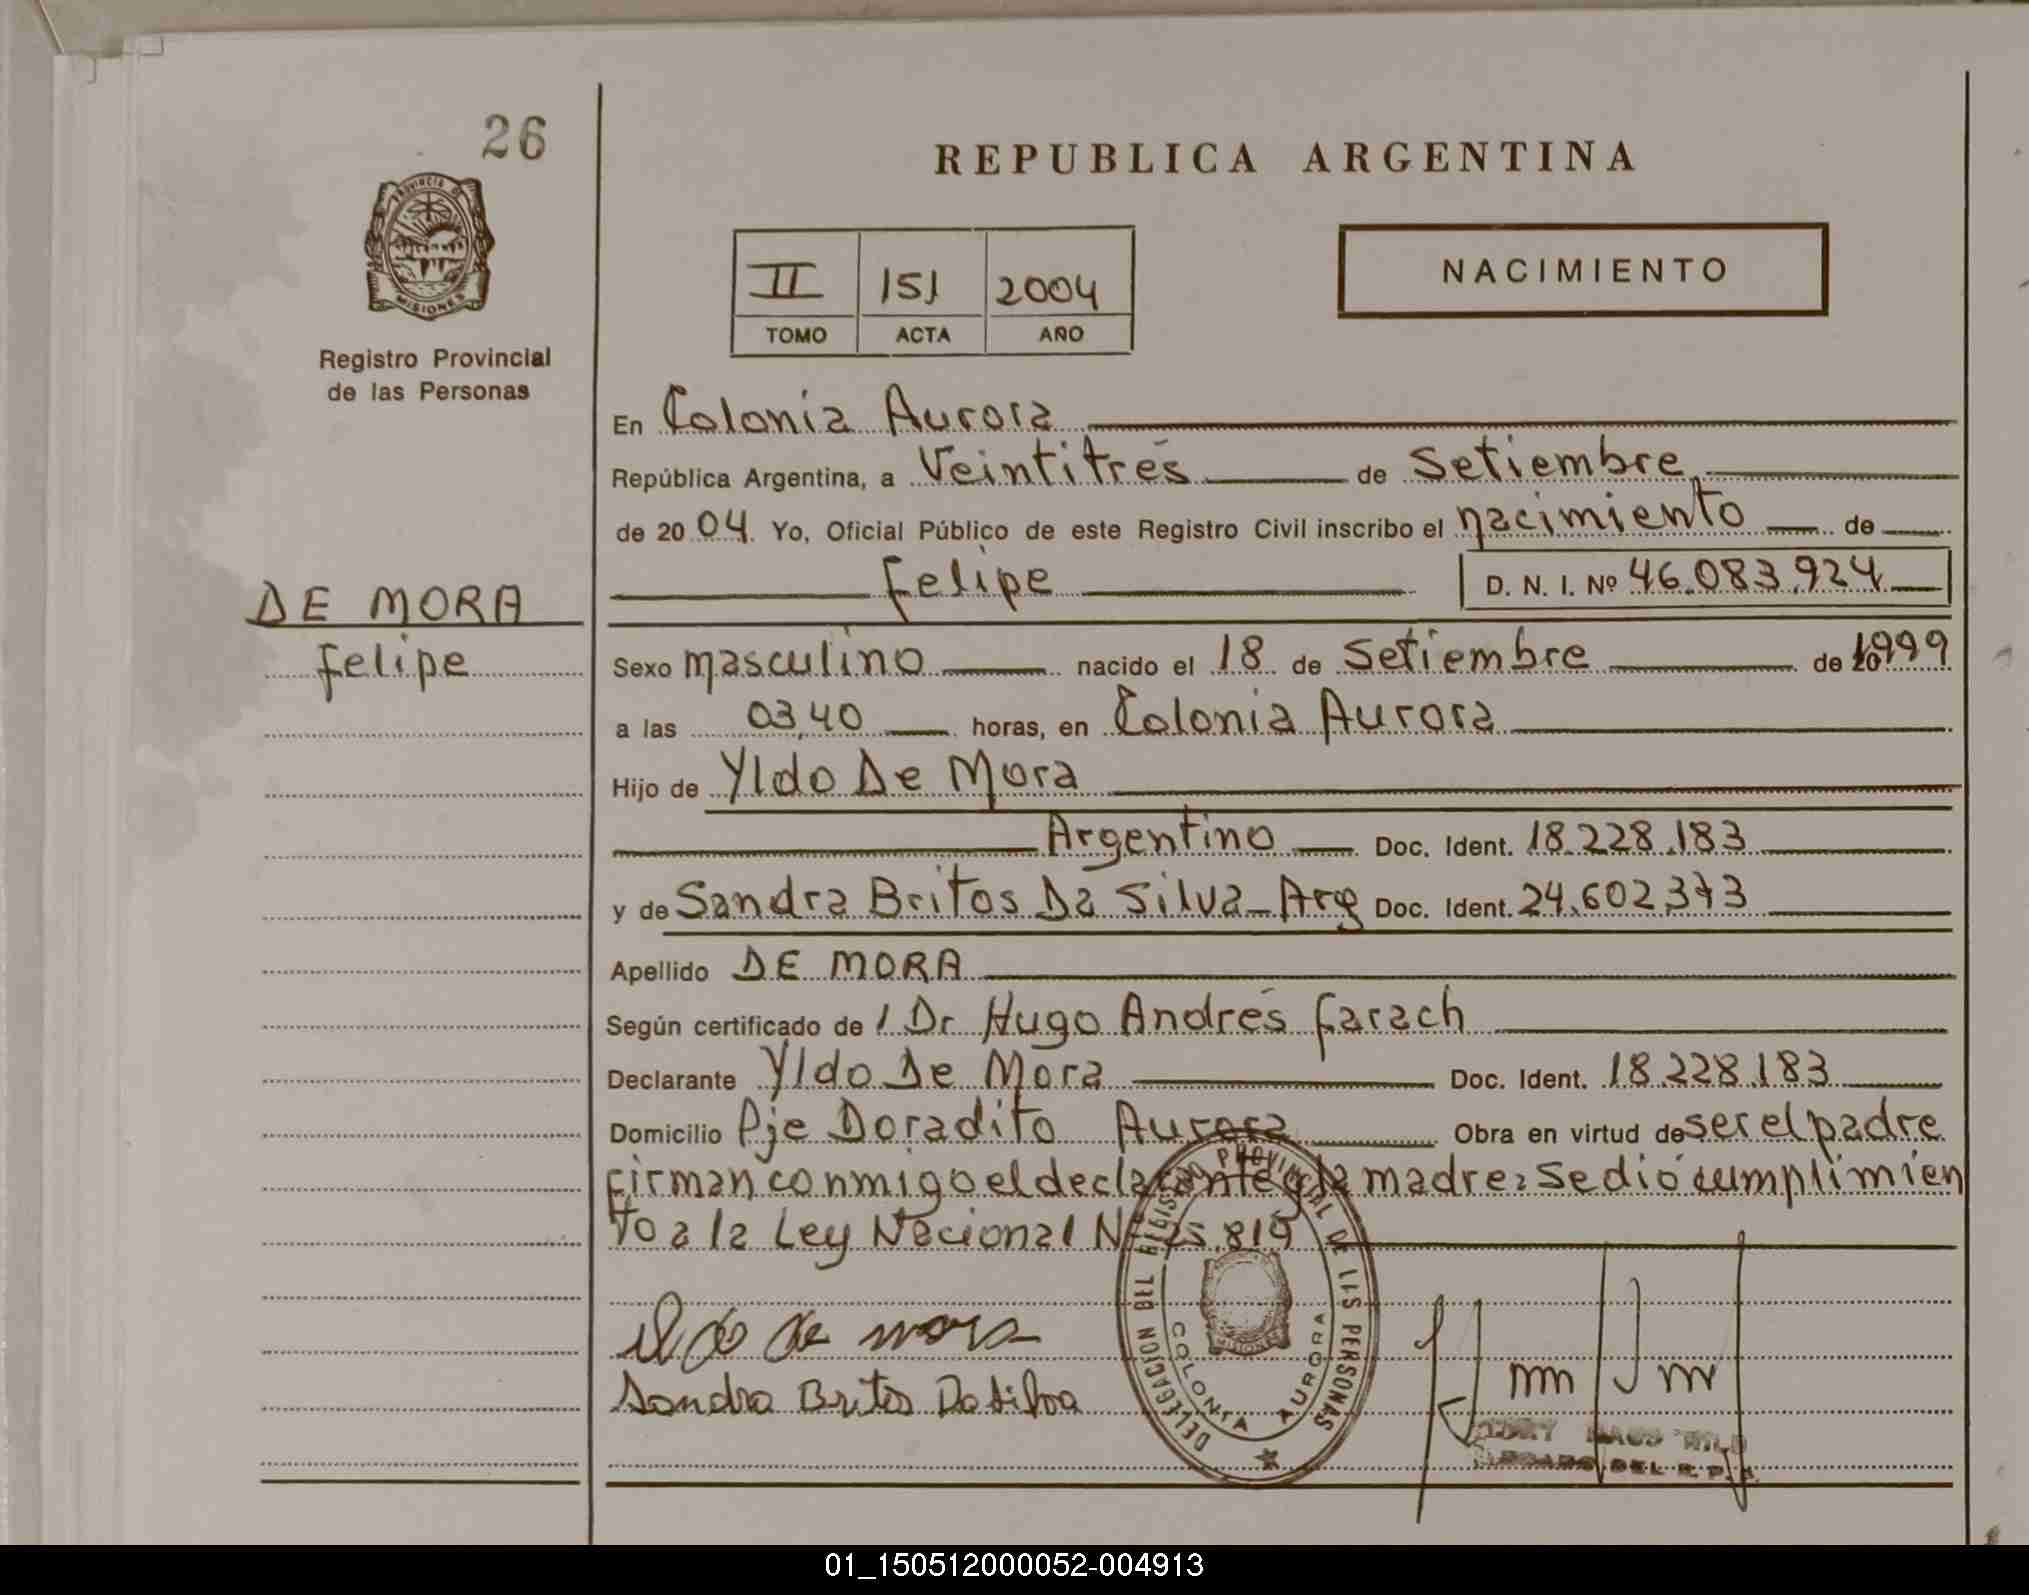 26
PROVINCIA DE
MISIONES
Registro Provincial
de las Personas
DE MORA
Felipe
REPUBLICA ARGENTINA
NACIMIENTO
II 151 2004
TOMO ACTA AÑO
En Colonia Aurora
República Argentina, a Veintitrés de Setiembre
de 2004. Yo, Oficial Público de este Registro Civil inscribo el nacimiento de
Felipe D. N. I. Nº 46.083.924
Sexo masculino nacido el 18 de Setiembre de 1999
a las 03,40 horas, en Colonia Aurora
Hijo de Yldo De Mora
Argentino Doc. Ident. 18.228.183
y de Sandra Britos Da Silva - Arg Doc. Ident. 24.602.373
Apellido DE MORA
Según certificado de / Dr Hugo Andrés Farach
Declarante Yldo De Mora Doc. Ident. 18.228.183
Domicilio Pje Doradito Aurora Obra en virtud de ser el padre
firman conmigo el declarante y la madre: Se dió cumplimien
to a la Ley Nacional Nº 25.819
Ildo de mora
Sandra Britos Da Silva
DELEGACION DEL REGISTRO PROVINCIAL DE LAS PERSONAS
COLONIA AURORA
DEL R. P.
01_150512000052-004913